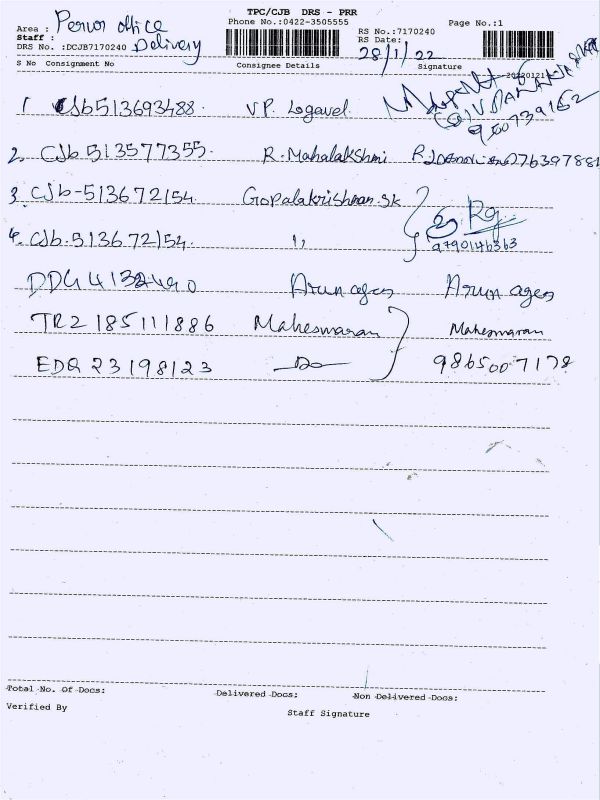 TPC/CJB DRS - PRR
Area : Perur office
Phone No.:0422-3505555
Page No.:1
Staff : Delivery
RS No.:7170240
DRS No. :DCJB7170240
RS Date: 28/1/22
S No Consignment No Consignee Details Signature
1 CJb513693488. V.P. Logavel.
2. CJb 513577355. R. Mahalakshmi
3. CJb-513672154. Gopalakrishnan.sk
9790146363
4. CJb.513672154. 〃
DDG Arun ages Arun agen
TR2 185111886 Maheswaran Maheswaran
EDQ 23198123 Do 9865007178
Total No. Of Docs: Delivered Docs: Non Delivered Docs:
Verified By Staff Signature